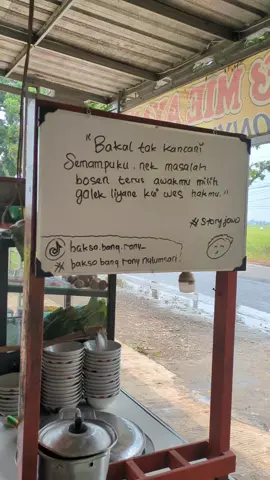 "Bakal tak kancani
Semampuku. nek masalah
bosen terus awakmu milih
golek liyane kui wes hakmu."
# story jowo
bakso.bang.rony_
bakso bang rony nulumsari
3 MIE AY